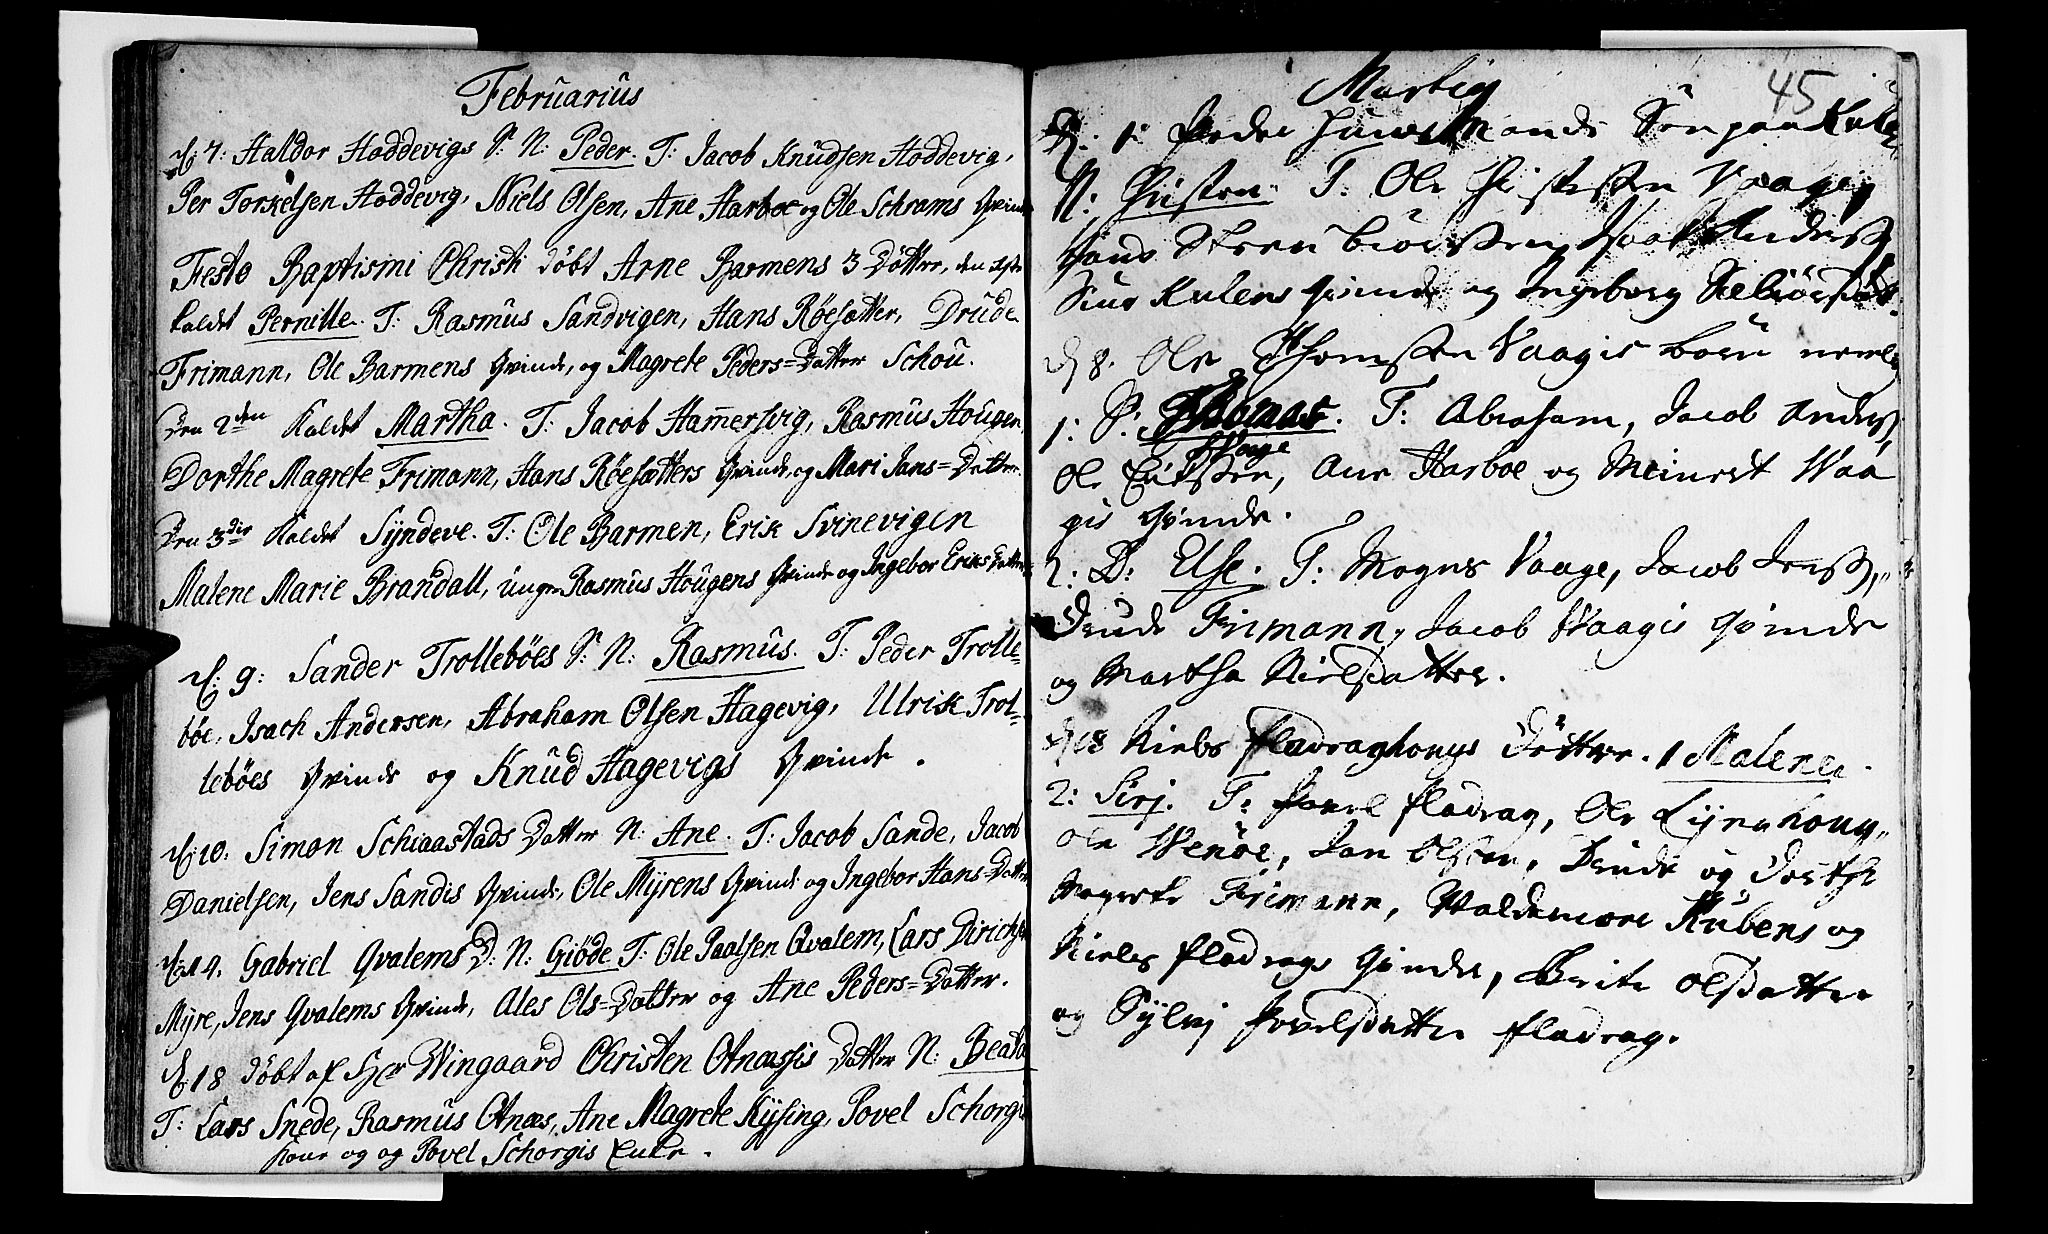 Februarius
d. 7: Haldor Hoddevigs S. N: Peder. T: Jacob Knudsen Hoddevig,
Per Torkelsen Hoddevig, Niels Olsen, Ane Harboe og Ole Schrams Qvinde
Festo Baptismi Christi döbt Arne Barmens 3 Döttre, den
kaldet Pernille. T: Rasmus Sandvigen, Hans Röesætter, Drude
Frimann, Ole Barmens Qvinde, og Magrete Peders=Datter Schou.
Den 2den Kaldet Martha. T: Jacob Ham̄ersvig, Rasmus Hougen,
Dorthe Magrete Frimann, Hans Röesætters Qvinde og Mari Jans=Datter.
Den 3die Kaldet Syndeve. T: Ole Barmen, Erik Svinevigen
Malene Marie Brandall, unge Rasmus Hougens Qvinde og Ingebor Eriks Datter
d: 9: Sander Trolleböes S. N: Rasmus. T: Peder Trolle-
böe, Isach Andersen, Abraham Olsen Hagevig, Ulrik Trol-
leböes Qvinde og Knud Hagevigs Qvinde.
d: 10. Simon Schiaastads Datter N: Ane. T: Jacob Sande, Jacob
Danielsen, Jens Sandis Qvinde, Ole Myrens Qvinde og Ingebor Hans=Datter
d: 14. Gabriel Qvalems D: N: Giöde T: Ole Paalsen Qvalem, Lars Dirichs
Myre, Jens Qvalems Qvinde, Ales Ols=Datter og Ane Peders=Datter.
d: 18 döbt af Hr Wingaard Christen Otnæssis Datter N: Beata
T: Lars Snede, Rasmus Otnæs, Ane Magrete Kysing, Povel Schorgis
kone og og Povel Schorgis Enke.
45
Martij
d. 1: Peder Huusmands Sön paa Kulen
N: Christen. T: Ole Vaage,
Hans Steen Isaak Anders:
Siur Kulens Qvinde og Ingeborg
d. 8. Ole Thomssen Vaagis börn neml.
1: S: Thomas. T: Abraham, Jacob Anders:
Vaage
Ole Erikssen, Ane Harboe og Meinert Waa
gis Qvinde.
2: D: Else. T: Mogns Vaage, Jacob Jenss:,
Drude Frimann, Jacob Waagis Qvinde
og Martha Nielsdatter.
d. 18 Niels Fladraghougs Döttre. 1 Malene.
2: Sirj. T: Povel Fladrag, Ole Lynghoug,
Ole Wenöe, Jan Olssen, Drude og Dorthe
Magrete Frimann, Waldemare Rubens og
Niels Fladrags Qvinde, Brite Olsdatter
og Sylvj Povelsdatter Fladrag.